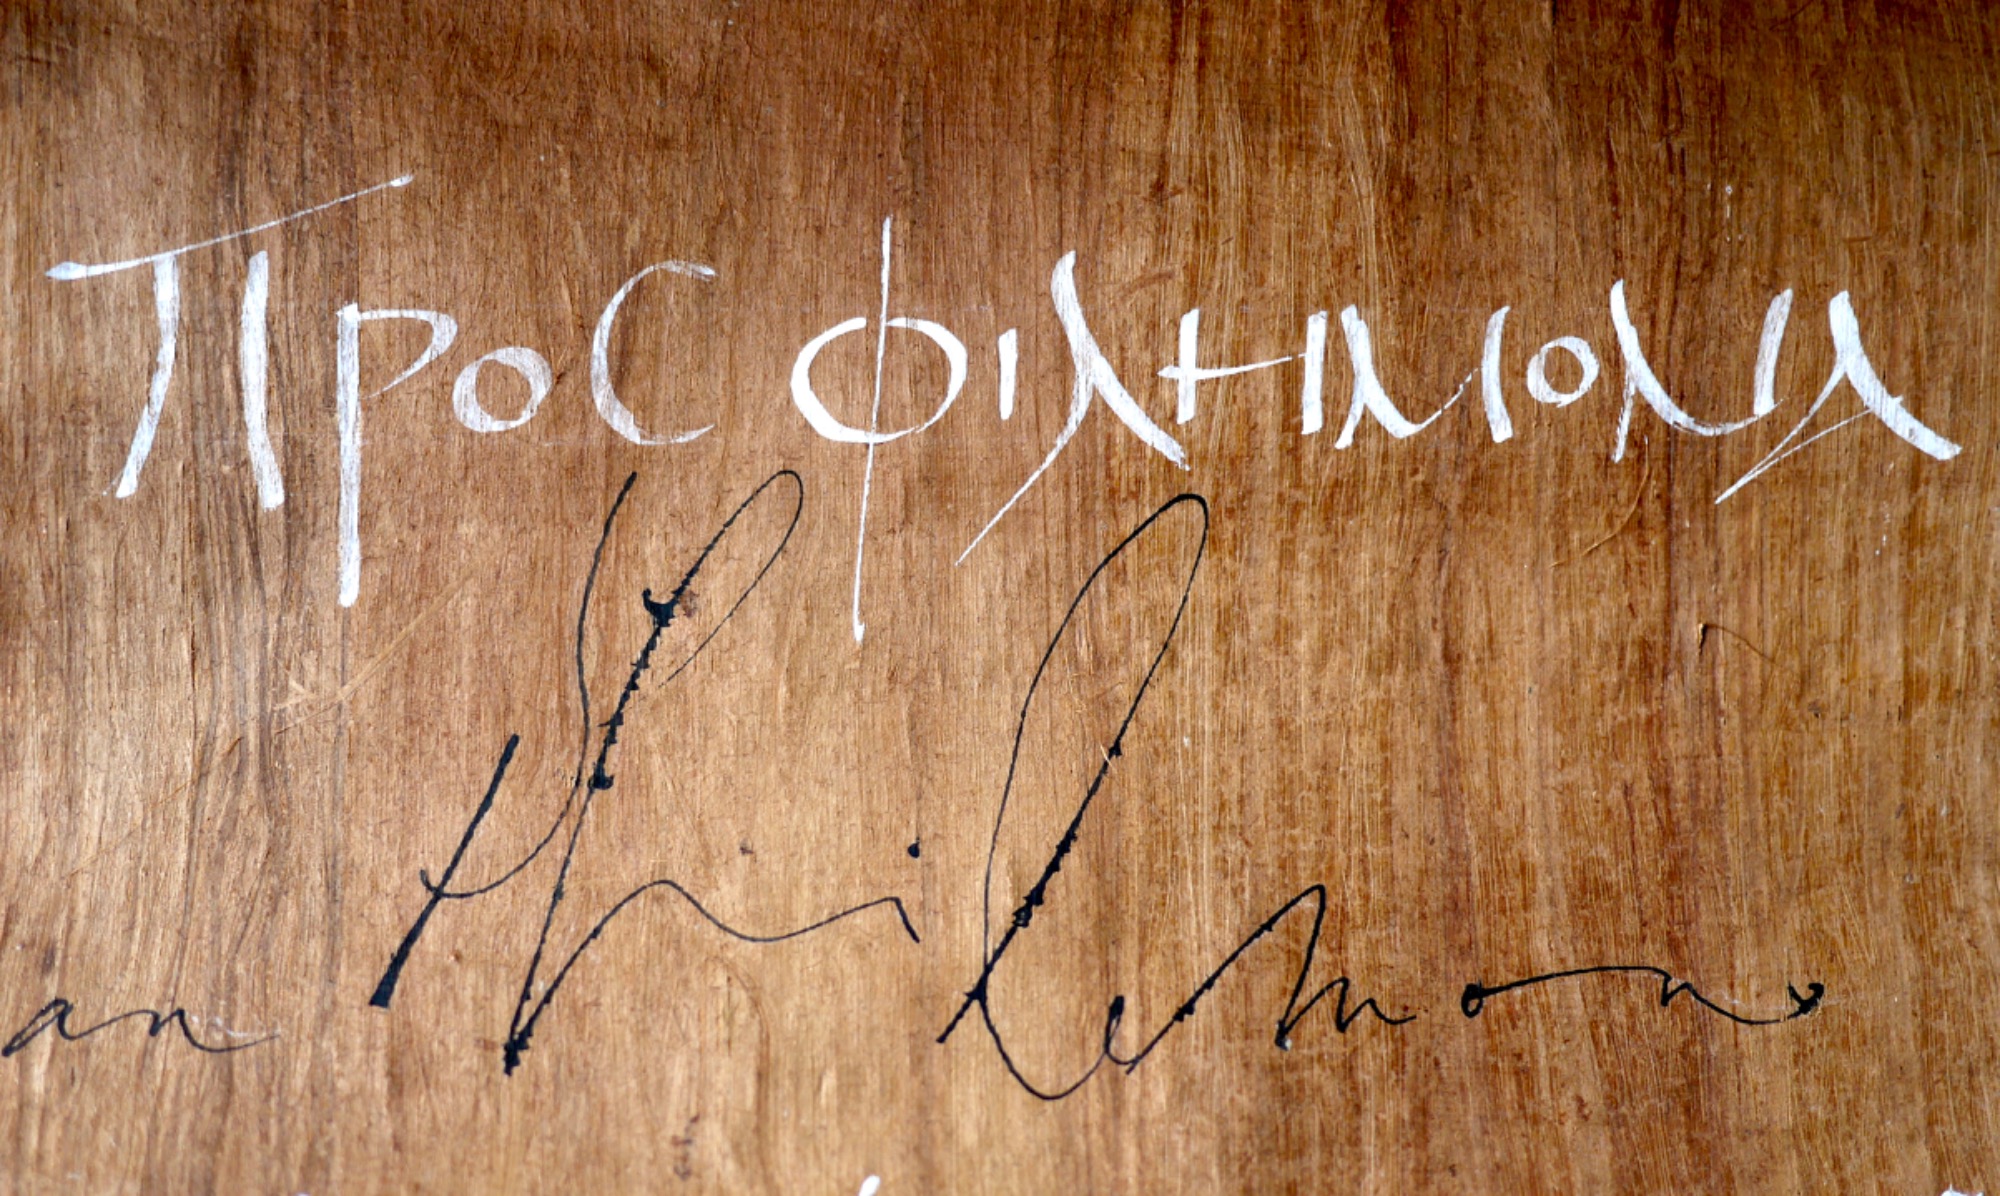 Προс φιλημονα
an Philemon